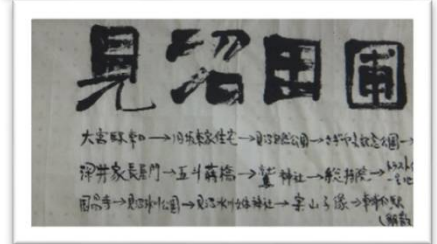 見沼田圃
大宮駅東口→旧坂東家住宅→見沼自然公園→さぎ山記念公園→
深井家長屋門→五斗蒔橋→鷲神社→総持院→トラスト
国昌寺→見沼氷川公園→見沼氷川女体神社→案山子像→
(解散